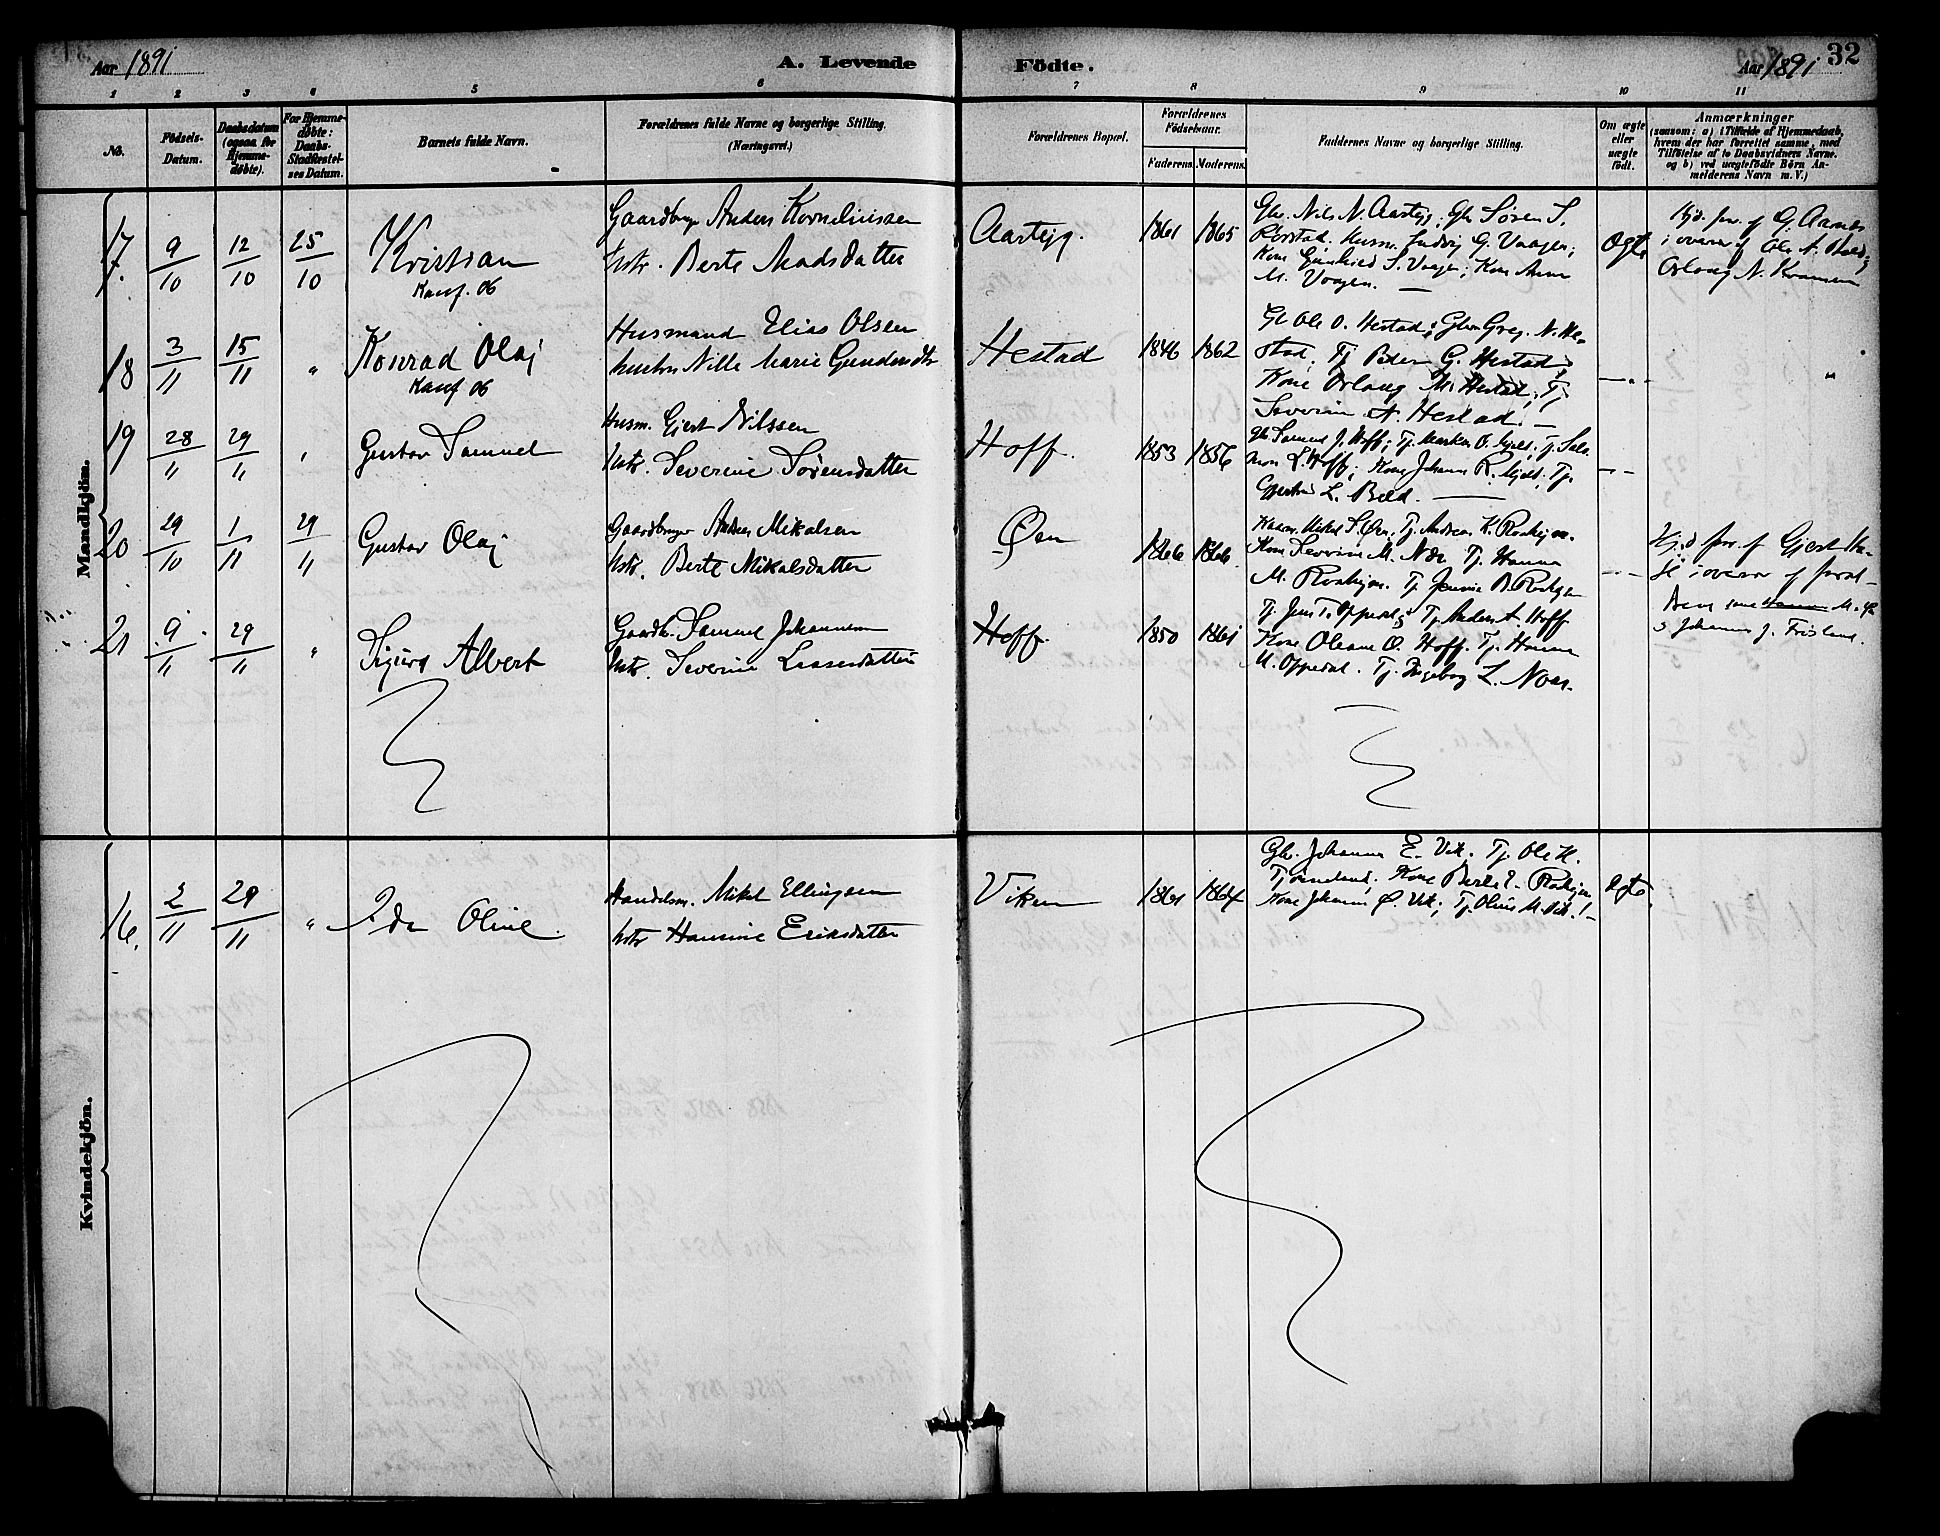 Aar 1891
A. Levende
Födte.
Aar 1891
32
1 2 3 4 5 6 7 8 9 10 11
No.
Födsels-Datum.
Daabsdatum (ogsaa for Hjemme-döbte).
For Hjemme-döbte: Daabs-Stadfæstel-ses Datum.
Barnets fulde Navn.
Forældrenes fulde Navne og borgerlige Stilling.
(Næringsvei.)
Forældrenes Bopæl.
Forældrenes Födselsaar.
Faderens. Moderens.
Faddernes Navne og borgerlige Stilling.
Om ægte eller uægte födt.
Anmærkninger
(saasom: a) i Tilfælde af Hjemmedaab,
hvem der har forrettet samme, med
Tilföielse af to Daabsvidners Navne.
og b) ved uægtefödte Börn An-
melderens Navn m. V.)
Mandkjön.
17. 9/10 12/10 25/10
Kristian
Konf. 06
Gaardbrger Anders Kornelinssen
Hstr. Berte Madsdatter
Aarstejg. 1861 1865
Gbr. Nils N. Aarstejg; Gbr Sören S.
Rörstad. Husm. Ludvig G. Vaagen;
Kone Gunhild S. Vaagen; Kone Anne
M. Vaagen. —
Ægte
i overv. af Ole A.
Oslaug N.
18 3/11 15/11 "
Konrad Olaj
Konf 06
Husmand Elias Olsen
Hustru Nille Marie Gundersdtr
Hestad 1846 1862
Gb Ole O. Hestad; Gbr Greg. N. He-
stad; Tj Peder G. Hestad;
Kone Oslaug M. Hestad; Tj
Severine A. Hestad. —
— " — "
19 28/11 29/11 "
Gustav Samuel
Husm. Gjert Nilssen
Hstr. Severine Sörensdatter
Hoff. 1853 1856
Gb Samuel J. Hoff; Tj. Markus O. Hjelt; Tj. Salo-
mon L. Hoff; Kone Johanne R. Hjelt; Tj.
Gjertrud L. Bæld. —
— " —
20 29/10 1/11 29/11
Gustav Olaj
Gaardbruger Anders Mikalsen
Hstr. Berte Mikalsdatter
Øen 1866 1866
Mikal S. Øen; Tj. Andreas K.
Kone Severine M. Tj. Hanna
M. Tj. Jennie B.
— " —
Hj.d for. af Gjest
i overv. af foræl-
dene samt M.
Johannes J. Frisland.
21 9/11 29/11 "
Sigurd Albert
Gaardb. Samuel Johannessen
Hstr. Severine Lassesdatter
Hoff 1850 1861
Tj. Jens T. Oppedal; Tj. Anders A. Hoff
Kone Oleane O. Hoff. Tj. Hanna
M. Oppedal. Tj. Ingeborg L.
Kvindekjön.
16. 2/11 29/11 "
Ida Oline
Handelsm. Mikal Ellingsen
Hstr Hansine Eriksdatter
Viken 1861 1864
Gbr. Johannes E. Vik. Tj. Ole H.
Kone Berte
Kone Johanne O. Vik; Tj. Oline M. Vik. —
Ægte